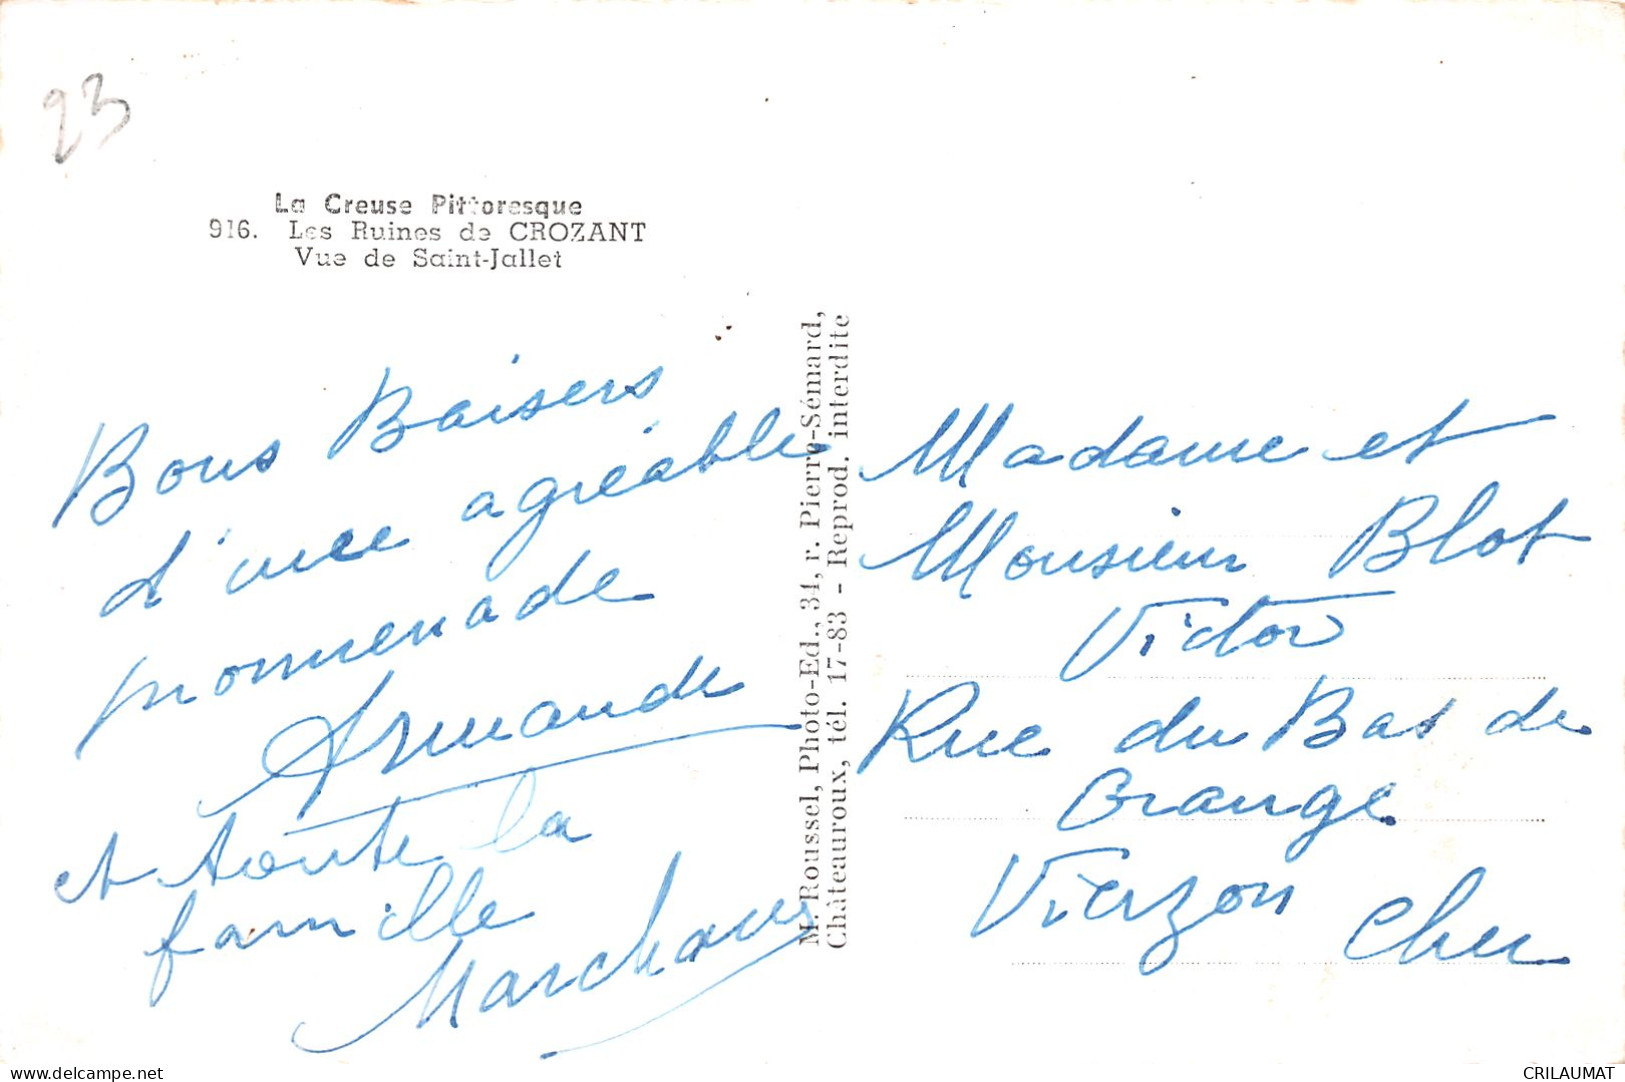 23
La Creuse Pittoresque
916. Les Ruines de CROZANT
Vue de Saint-Jallet
Bons Baisers
d'une agréable
promenade
Armande
et toute la
famille
M. Roussel, Photo-Ed., 34, r. Pierre-Sémard,
Châteauroux, tél. 17-83 - Reprod. interdite
Madame et
Monsieur Blot
Victor
Rue du Bas de
Grange
Vierzon
Cher
delcampe.net
CRILAUMAT